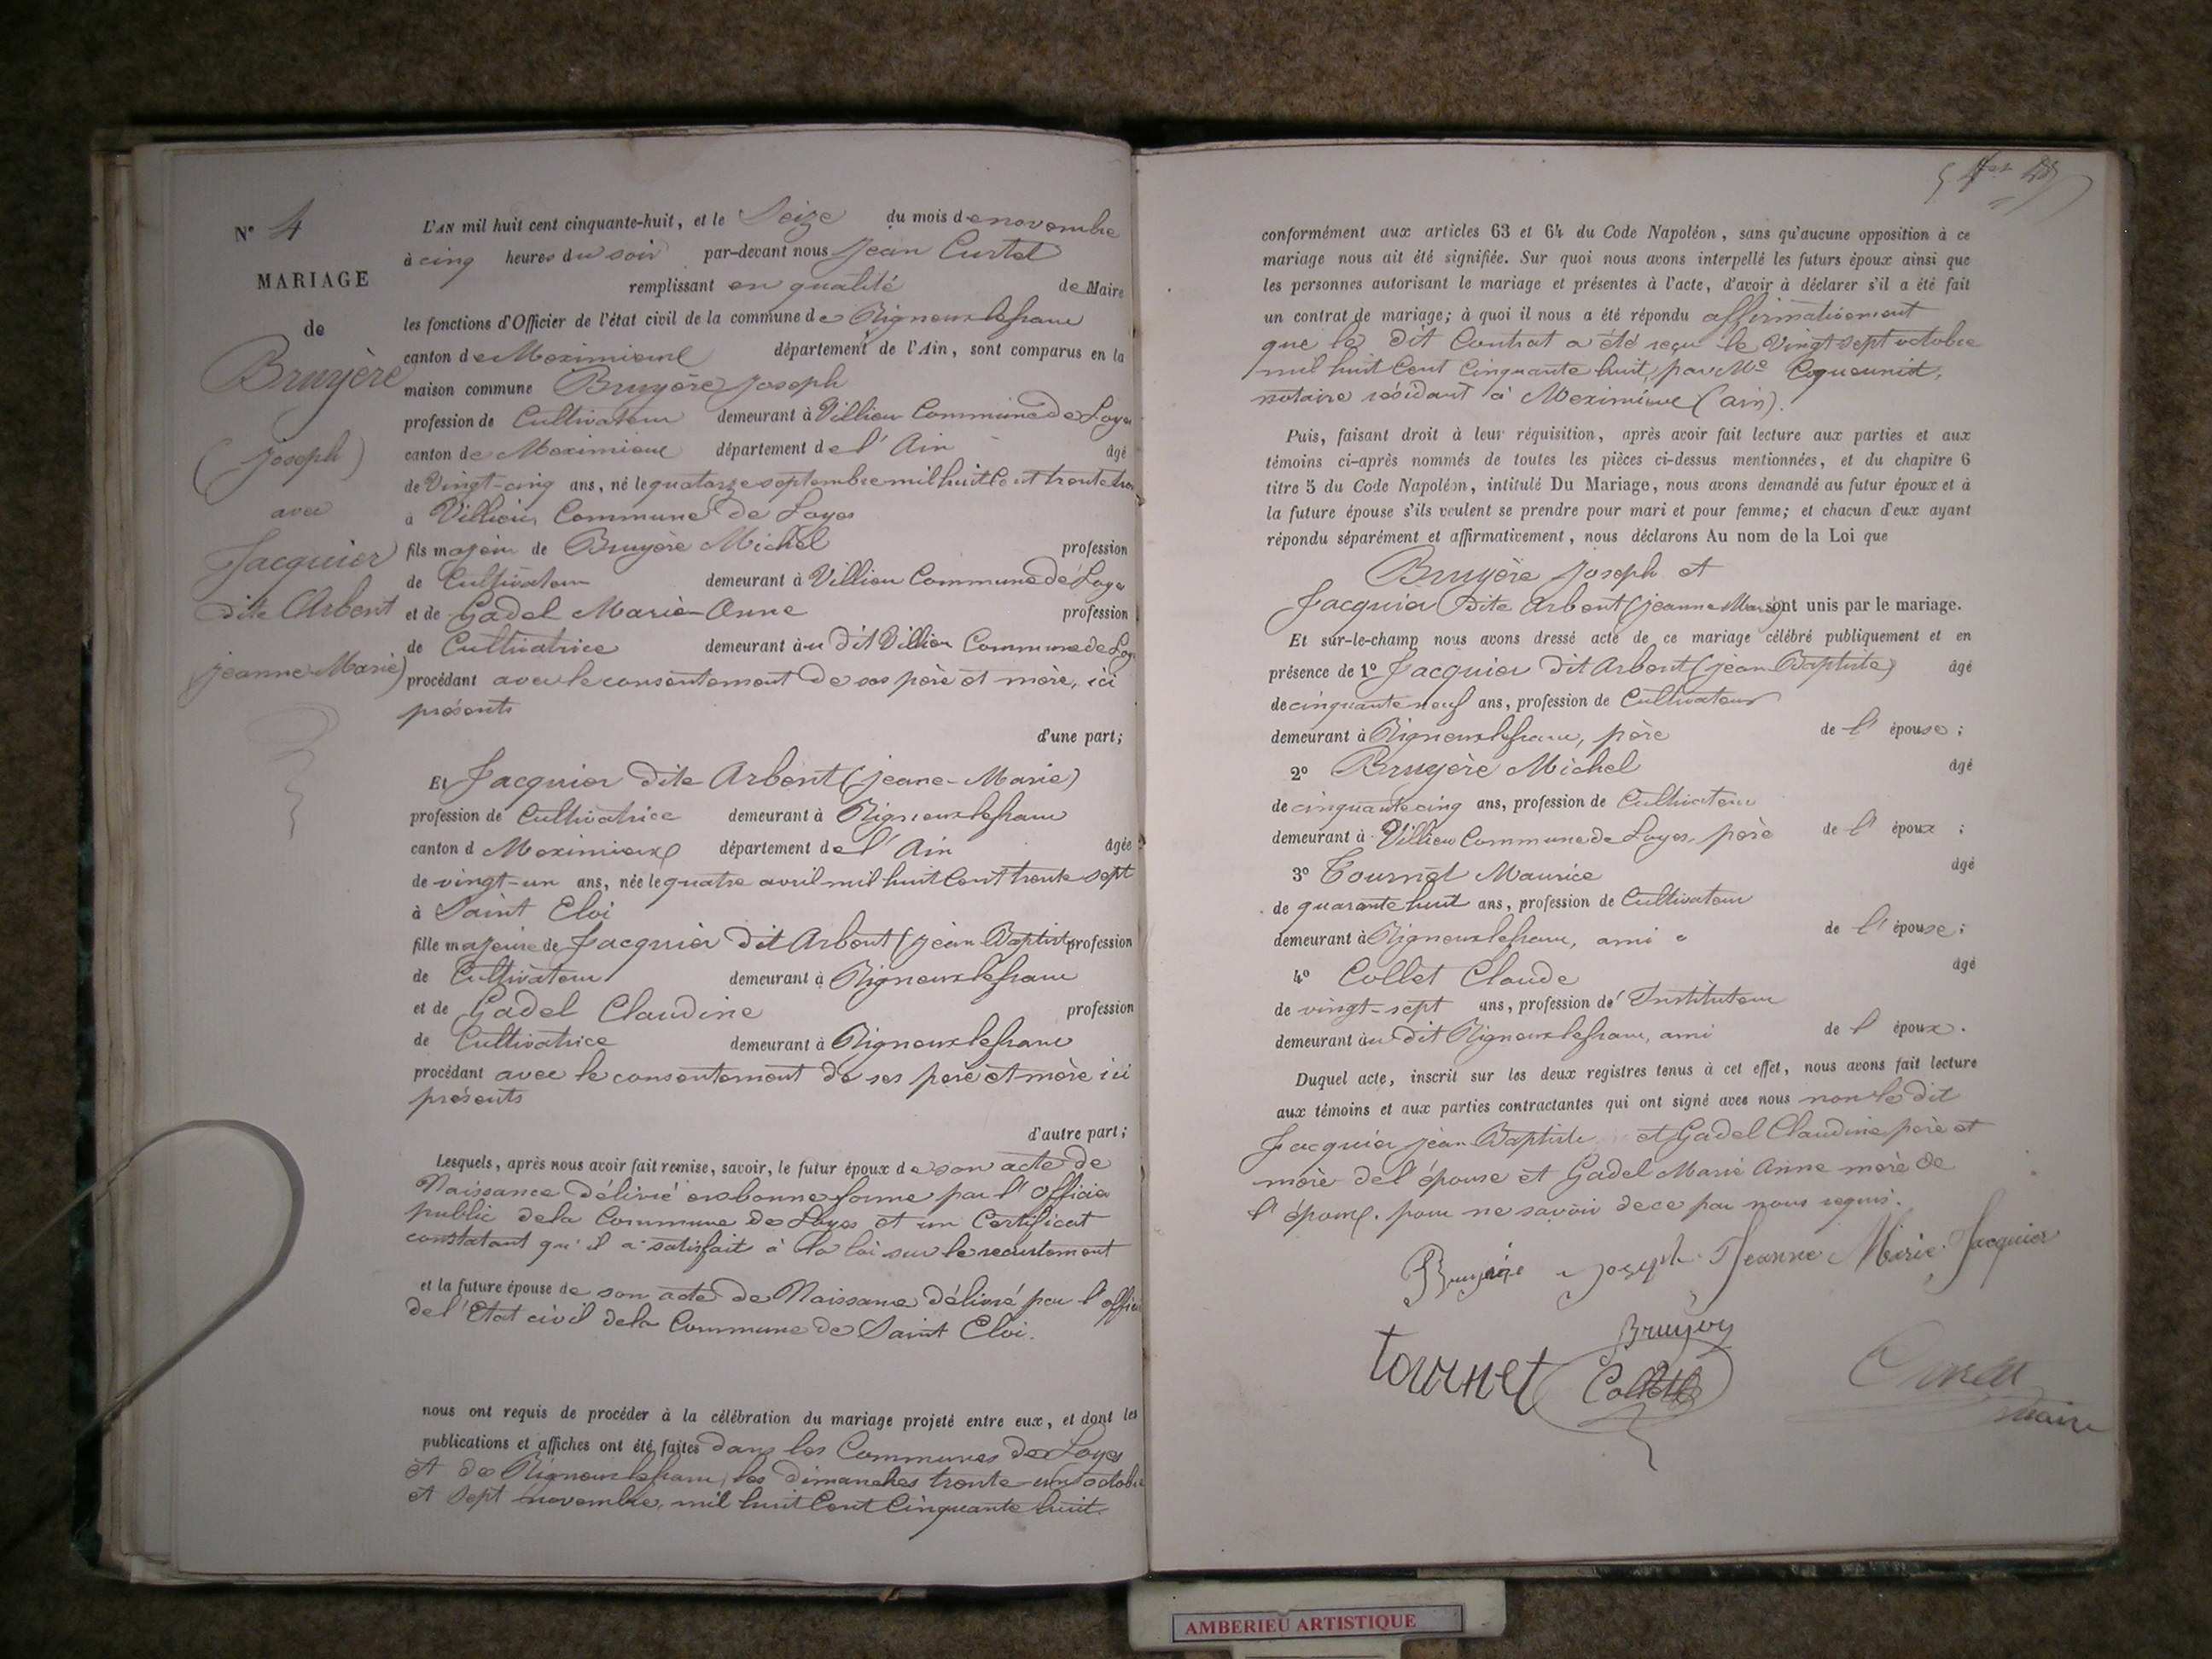 N° 4
MARIAGE
de
Bruyère
(joseph)
avec
Jacquier
dite Arbent
(jeanne Marie)
L'AN mil huit cent cinquante-huit, et le Seize du mois de novembre
à cinq heures du soir par-devant nous Jean Curtet
remplissant en qualité de Maire
les fonctions d'Officier de l'état civil de la commune de Rigneux lefranc
canton de Meximieux département de l'Ain, sont comparus en la
maison commune Bruyère Joseph
profession de Cultivateur demeurant à Villieu Commune de Loyes
canton de Meximieux département de l'Ain âgé
de Vingt-cinq ans, né le quatorze septembre mil huit Cent trente trois
à Villieu Commune de Loyes
fils majeur de Bruyère Michel profession
de Cultivateur demeurant à Villieu Commune de Loyes
et de Gadel Marie-Anne profession
de Cultivatrice demeurant au dit Villieu Commune de Loyes
procédant avec le consentement de ses père et mère, ici
présents
d'une part;
Et Jacquier dite Arbent (jeane-Marie)
profession de Cultivatrice demeurant à Rigneux lefranc
canton d Meximieux département de l'Ain âgée
de vingt-un ans, née le quatre avril mil huit Cent trente sept
à Saint Eloi
fille majeure de Jacquier dit Arbent (jean Baptiste) profession
de Cultivateur demeurant à Rigneux lefranc
et de Gadel Claudine profession
de Cultivatrice demeurant à Rigneux lefranc
procédant avec le consentement de ses père et mère ici
présents
d'autre part;
Lesquels, après nous avoir fait remise, savoir, le futur époux de son acte de
Naissance délivré en bonne forme par l'officier
public de la Commune de Loyes et un Certificat
constatant qu'il a satisfait à la loi sur le recrutement
et la future épouse de son acte de Naissance délivré par l'officier
de l'Etat civil de la Commune de Saint Eloi.
nous ont requis de procéder à la célébration du mariage projeté entre eux, et dont les
publications et affiches ont été faites dans les Communes de Loyes
et de Rigneux lefranc, les dimanches trente-un octobre
et sept novembre, mil huit Cent Cinquante huit.
conformément aux articles 63 et 64 du Code Napoléon, sans qu'aucune opposition à ce
mariage nous ait été signifiée. Sur quoi nous avons interpellé les futurs époux ainsi que
les personnes autorisant le mariage et présentes à l'acte, d'avoir à déclarer s'il a été fait
un contrat de mariage; à quoi il nous a été répondu affirmativement
que le dit Contrat a été reçu le Vingt sept octobre
mil huit Cent Cinquante huit, par Me
notaire résidant à Meximieux (ain).
Puis, faisant droit à leur réquisition, après avoir fait lecture aux parties et aux
témoins ci-après nommés de toutes les pièces ci-dessus mentionnées, et du chapitre 6
titre 5 du Code Napoléon, intitulé Du Mariage, nous avons demandé au futur époux et à
la future épouse s'ils veulent se prendre pour mari et pour femme; et chacun d'eux ayant
répondu séparément et affirmativement, nous déclarons Au nom de la Loi que
Bruyère Joseph et
Jacquier dite Arbent (jeanne Marie) sont unis par le mariage.
Et sur-le-champ nous avons dressé acte de ce mariage célébré publiquement et en
présence de 1° Jacquier dit Arbent (jean Baptiste) âgé
de cinquante neuf ans, profession de Cultivateur
demeurant à Rigneux lefranc, père de l'épouse;
2° Bruyère Michel âgé
de cinquante cinq ans, profession de Cultivateur
demeurant à Villieu Commune de Loyes, père de l'époux;
3° Tournet Maurice âgé
de quarante huit ans, profession de Cultivateur
demeurant à Rigneux lefranc, ami de l'épouse;
4° Collet Claude âgé
de vingt-sept ans, profession de Instituteur
demeurant au dit Rigneux lefranc, ami de l'époux.
Duquel acte, inscrit sur les deux registres tenus à cet effet, nous avons fait lecture
aux témoins et aux parties contractantes qui ont signé avec nous non le dit
Jacquier jean Baptiste et Gadel Claudine père et
mère de l'épouse et Gadel Marie Anne mère de
l'époux. pour ne savoir de ce par nous requis.
Bruyère joseph Jeanne Marie Jacquier
Bruyer
tournet Collet Curtet
maire
AMBERIEU ARTISTIQUE